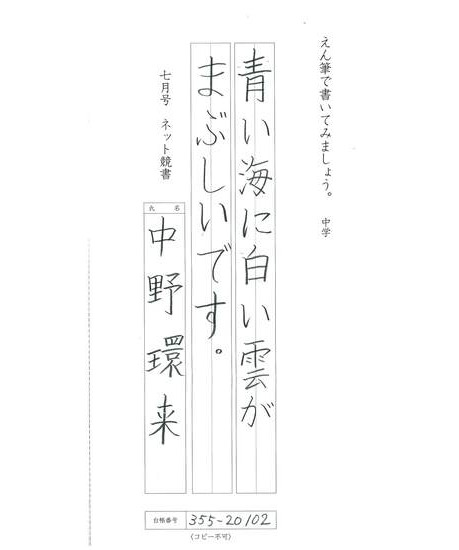 えん筆で書いてみましょう。 中学
青い海に白い雲が
まぶしいです。
七月号 ネット競書
氏名
中野環来
台帳番号 355-20102
〈コピー不可〉